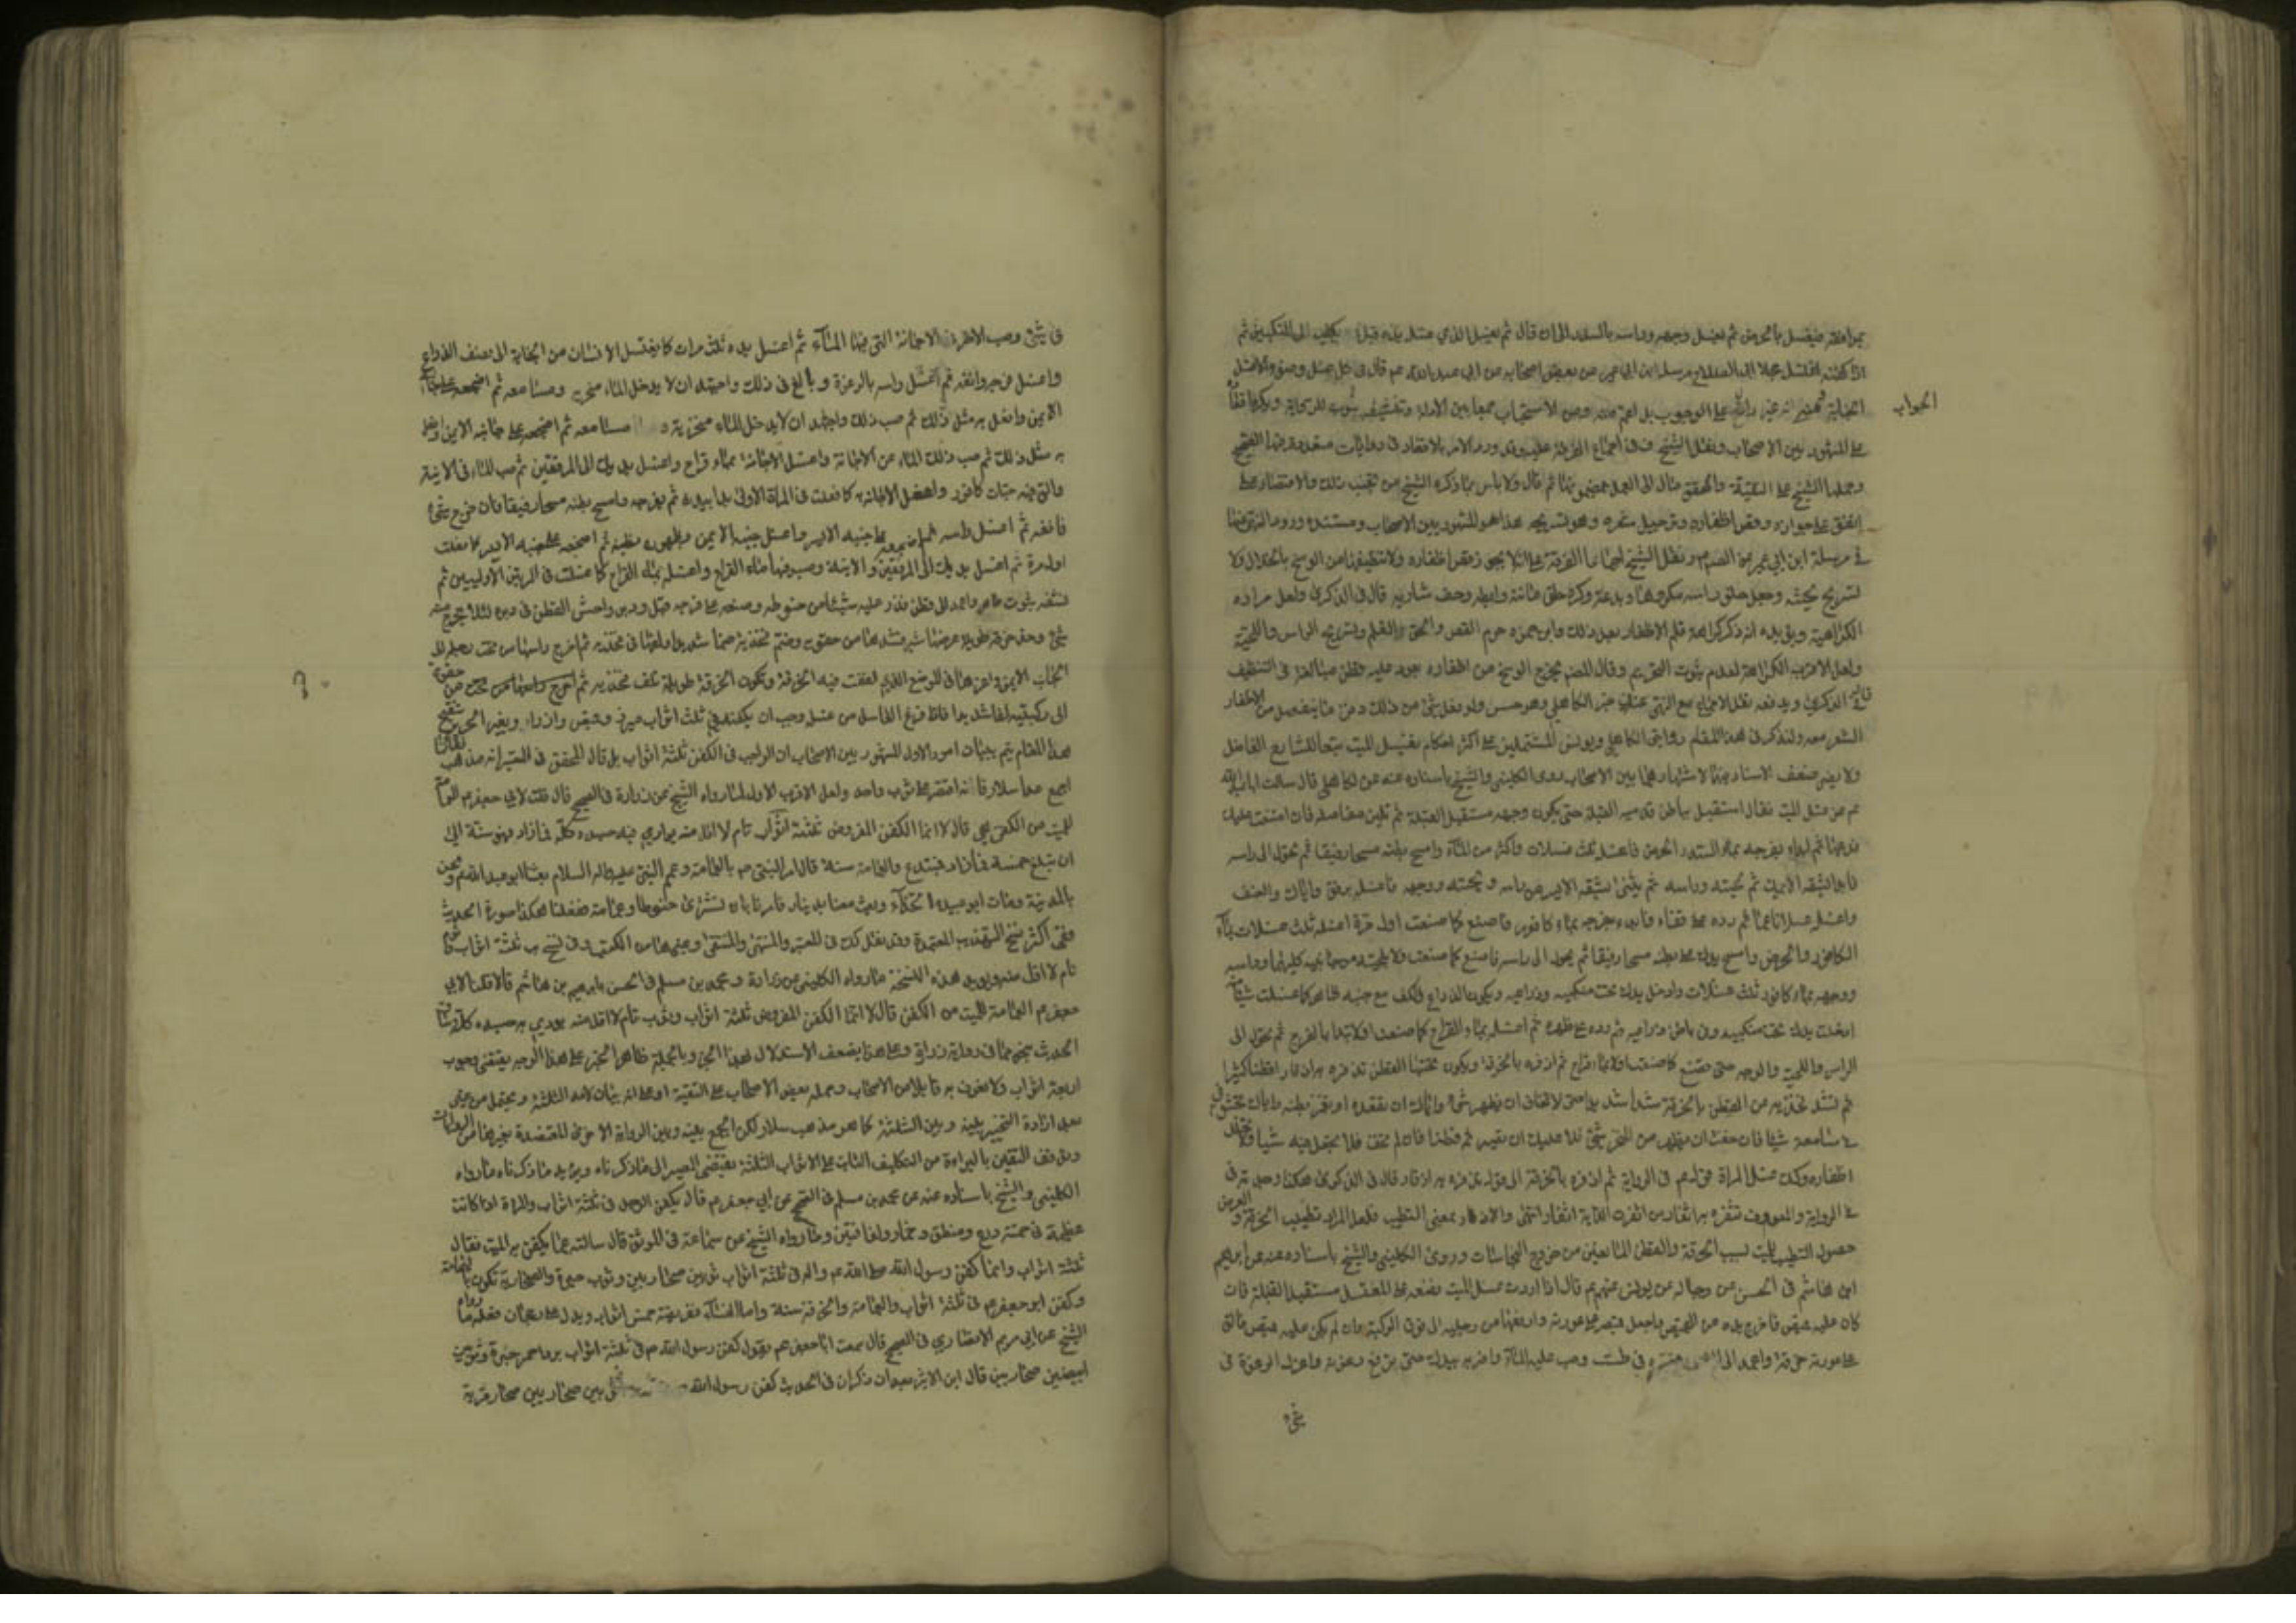 بمرافقه فيغسل بالحرض ثم يغسل وجهه ورأسه بالسدر الى ان قال ثم يغسل الذي غسله يده قبل ان يكفنه الى المنكبين ثم
اذا كفنه اغتسل عملا الى مرسلة ابن ابي عمير عن بعض اصحابه عن ابي عبد الله عم قال في كل غسل وضوء الا غسل
الجنابة على الوجوب بل اعم منه ومن الاستحباب جمعا بين الادلة وتنشيفه بثوب
الجواب
على المشهور بين الاصحاب ونقل الشيخ في ف اجماع الفرقة عليه وقد ورد الامر بالاقعاد في روايات متعددة
وحملها الشيخ على التقية والمحقق مال الى العمل بمضمونها ثم قال ولا باس بما ذكره الشيخ من تجنب ذلك والاقتصار على
المتفق على جوازه وقص اظفاره وترجيل شعره وهو تسريحه هذا هو المشهور بين الاصحاب ومستنده ورود النهي عنها
في مرسلة ابن ابي عمير ونقل الشيخ اجماع الفرقة على انه لا يجوز قص اظفاره ولا تنظيفها من الوسخ بالخلال ولا
تسريح لحيته وجعل حلق راسه مكروها وبدعة وكره حلق عانته وابطه وحف شاربه قال في الذكرى ولعل مراده
الكراهية ويؤيده انه ذكر كراهة قلم الاظفار بعد ذلك وابن حمزه حرم القص والحلق والقلم وتسريح الراس واللحية
ولعل الاقرب الكراهة لعدم ثبوت التحريم وقال المفيد يخرج الوسخ من اظفاره بعود عليه قطن مبالغة في التنظيف
قال في الذكرى ويدفعه نقل الاجماع مع النهي عنه في خبر الكاهلي وهو حسن ولو فعل شيئ من ذلك دفن ما ينفصل من الاظفار
الشعر معه ولنذكر في هذا المقام روايتي الكاهلي ويونس المشتملين على اكثر احكام تغسيل الميت تبعا للشارع الفاضل
ولا يضر ضعف الاسناد بهما لاشتهارهما بين الاصحاب روى الكليني والشيخ باسناده عنه عن الكاهلي قال سالت ابا عبد الله
عم عن غسل الميت فقال استقبل بباطن قدميه القبلة حتى يكون وجهه مستقبل القبلة ثم تلين مفاصله فان امتنعت عليك
فدعها ثم ابدء بفرجه بماء السدر والحرض فاغسله ثلث غسلات واكثر من الماء وامسح بطنه مسحا رفيقا ثم تحول الى راسه
فابدا بشقه الايمن من لحيته وراسه ثم يثنى بشقه الايسر من راسه ولحيته ووجهه فاغسله برفق واياك والعنف
واغسله غسلا ناعما ثم رده على قفاه فابدء بفرجه بماء كافور فاصنع كما صنعت اول مرة اغسله ثلث غسلات بماء
الكافور والحرض وامسح يدك على بطنه مسحا رفيقا ثم تحول الى راسه فاصنع كما صنعت ولا بلحيته من جانبيه كليهما وراسه
ووجهه بماء كافور ثلث غسلات وادخل يدك تحت منكبيه وذراعيه ويكون الذراع والكف مع جنبه ظاهرة كلما غسلت شيئا
ادخلت يدك تحت منكبيه وفي باطن ذراعيه ثم رده على ظهره ثم اغسله بماء القراح كما صنعت اولا تبدا بالفرج ثم تحول الى
الراس واللحية والوجه حتى تصنع كما صنعت اولا بماء قراح ثم ازره بالخرقة ويكون تحتها القطن تذفره به اذفارا قطنا كثيرا
ثم تشد فخذيه من القطن بالخرقة شدا شديدا حتى لا تخاف ان يظهر شئ واياك ان تقعده او تغمز بطنه واياك تحشو في
مسامعه شيئا فان خفت ان يظهر من المنخر شئ فلا عليك ان تصير ثم قطنا فان لم تخف فلا تجعل فيه شيئا ولا تخلل
اظفاره وكذلك غسل المراة قوله عم في الرواية ثم اذفره بالخرقة الى قوله تذفره به اذفار قال في الذكرى هكذا وجد
في الرواية والمعروف تثفره به اثفارا من اثفرت الدابة اثفارا انتهى والاذفار بمعنى التطيب فلعل المراد تطييب الخرقة و
حصول التطيب للميت بسبب الخرقة والقطن المانعين من خروج النجاسات وروى الكليني والشيخ باسناده عنه عن ابرهيم
ابن هاشم في الحسن عن رجاله عن يونس عنهم عم قال اذا اردت غسل الميت فضعه على المغتسل مستقبل القبلة فان
كان عليه قميص فاخرج يده من القميص واجعل قميصه على عورته وارفعها من رجليه الى فوق الركبة وان لم يكن عليه قميص فالق
على عورته خرقة واعمد الى السدر فصيره في طست وصب عليه الماء واضربه بيدك حتى ترتفع رغوته واعزل الرغوة في
شئ
في شئ وصب الاخر في الاجانة التي فيها الماء ثم اغسل يده ثلث مرات كما يغتسل الانسان من الجنابة الى نصف الذراع
واغسل فرجه وانقه ثم اغسل راسه بالرغوة وبالغ في ذلك واجتهد ان لا يدخل الماء منخريه ومسامعه ثم اضجعه على جانبه
الايمن وافعل به مثل ذلك ثم صب ذلك واجتهد ان لا يدخل الماء منخريه و مسامعه ثم اضجعه على جانبه الايمن وافعل
به مثل ذلك ثم صب ذلك الماء من الاجانة واغسل الاجانة بماء قراح واغسل يديك الى المرفقين ثم صب الماء في الانية
والق فيه حبات كافور وافعل به كما فعلت في المرة الاولى ابدا بيديه ثم بفرجه وامسح بطنه مسحا رفيقا فان خرج شئ
فانقه ثم اغسل راسه ثم اضجعه على جنبه الايسر واغسل جنبه الايمن وظهره وبطنه ثم اضجعه على جنبه الايمن كما فعلت
اول مرة ثم اغسل يديك الى المرفقين والانية وصب فيها ماء القراح واغسله بماء القراح كما غسلت في المرتين الاوليين ثم
نشفه بثوب طاهر واعمد الى قطن فذر عليه شيئا من حنوطه وضعه على فرجه قبل ودبر واحش القطن في دبره لئلا يخرج منه
شئ وخذ خرقة طويلة عرضها شبر فشدها من حقويه وضم فخذيه ضما شديدا ولفها في فخذيه ثم اخرج راسها من تحت رجليه الى
الجانب الايمن واغرزها في الموضع الذي لففت فيه الخرقة وتكون الخرقة طويلة تلف فخذيه من حقويه
الى ركبتيه لفا شديدا فاذا فرغ الغاسل من غسله وجب ان يكفنه في ثلث اثواب ميزر وقميص وازار وبغير الحرير
هذا المقام يتم ببيان امور الاول المشهور بين الاصحاب ان الواجب في الكفن ثلثة اثواب بل قال المحقق في المعتبر انه مذهب
اجمع عدا سلار فانه اقتصر على ثوب واحد ولعل الاقرب الاول لما رواه الشيخ عن زرارة في الصحيح قال قلت لابي جعفر عم العمامة
للميت من الكفن هي قال لا انما الكفن المفروض ثلثة اثواب تام لا اقل منه يوارى فيه جسده كله فما زاد فهو سنة الى
ان يبلغ خمسة فما زاد فمبتدع والعمامة سنة قال امر النبي ص بالعمامة وعمم النبي عليه واله السلام بعثنا ابو عبد الله عم ونحن
بالمدينة ومات ابو عبيدة الحذاء وبعث معنا بدينار فامرنا بان نشتري حنوطا وعمامة ففعلنا هكذا صورة الحديث
وفي اكثر نسخ التهذيب المعتمدة وقد نقل كذلك في المعتبر والمنتهى والمنتقى وغيرها من الكتب وفي نسخ يب ثلثة اثواب
تام لا اقل منه ويؤيد هذه النسخة ما رواه الكليني عن زرارة ومحمد بن مسلم في الحسن بابرهيم بن هاشم قالا قلنا لابي
جعفر عم العمامة للميت من الكفن قال لا انما الكفن المفروض ثلثة اثواب وثوب تام لا اقل منه يوارى به جسده كله
الحديث بنحو مما في رواية زرارة وعلى هذا يضعف الاستدلال بهذا الخبر وبالجملة ظاهر الخبر على هذا الوجه يقتضي وجوب
اربعة اثواب ولا نعرف به قايلا من الاصحاب وحمله بعض الاصحاب على التقية او على انه بيان لاحد الثلثة ويحتمل
بعد ارادة التخيير بينه وبين الثلثة كما هو مذهب سلار لكن الجمع بينه وبين الرواية الاخرى المعتضدة بغيرها من الروايات
وتوقف اليقين بالبراءة من التكليف الثابت على الاثواب الثلثة يقتضي المصير الى ما ذكرناه ويؤيد ما ذكرناه ما رواه
الكليني والشيخ باسناده عنه عن محمد بن مسلم في الصحيح عن ابي جعفر عم قال يكفن الرجل في ثلثة اثواب والمراة اذا كانت
عظيمة في خمسة درع ومنطق وخمار ولفافتين وما رواه الشيخ عن سماعة في الموثق قال سالته عما يكفن به الميت فقال
ثلثة اثواب وانما كفن رسول الله صلى الله عليه واله في ثلثة اثواب ثوبين صحاريين وثوب حبرة والصحارية تكون باليمامة
وكفن ابو جعفر عم في ثلثة اثواب والعمامة والخرقة سنة واما النساء ففريضته خمس اثواب ويدل على رجحان فعله ما رواه
الشيخ عن ابي مريم الانصاري في الصحيح قال سمعت ابا جعفر عم يقول كفن رسول الله ص في ثلثة اثواب برد احمر حبرة وثوبين
ابيضين صحاريين قال ابن الاثير بعد ان ذكر ان في الحديث كفن رسول الله بين صحاريين صحار قرية